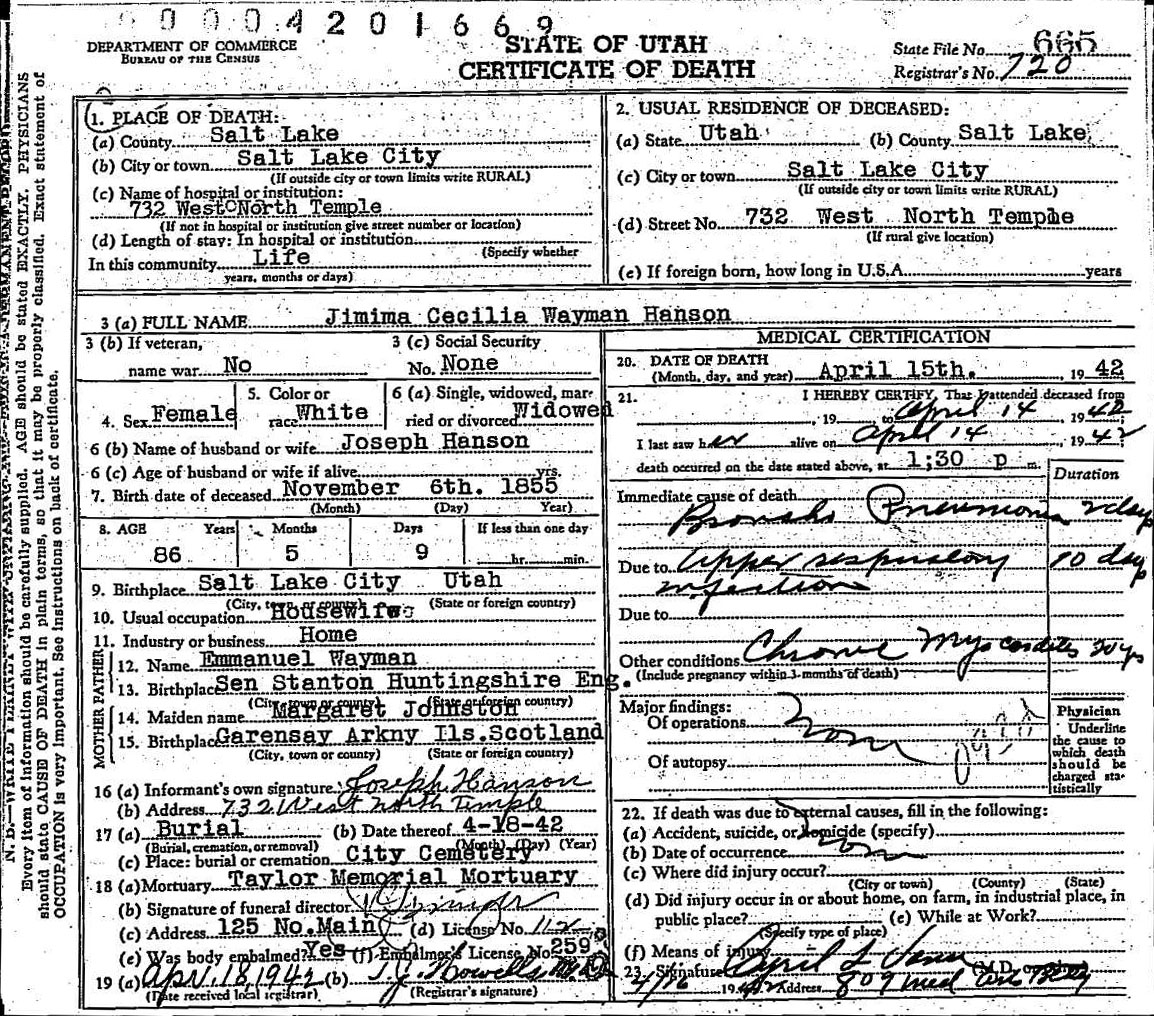 0004201669
DEPARTMENT OF COMMERCE
BUREAU OF THE CENSUS
STATE OF UTAH
CERTIFICATE OF DEATH
State File No. 665
Registrar's No. 720
N. B.—WRITE
Every item of information should be carefully supplied. AGE should be stated EXACTLY. PHYSICIANS
should state CAUSE OF DEATH in plain terms, so that it may be properly classified. Exact statement of
OCCUPATION is very important. See instructions on back of certificate.
1. PLACE OF DEATH:
(a) County Salt Lake
(b) City or town Salt Lake City
(If outside city or town limits write RURAL)
(c) Name of hospital or institution:
732 West North Temple
(If not in hospital or institution give street number or location)
(d) Length of stay: In hospital or institution
(Specify whether
In this community Life
years, months or days)
2. USUAL RESIDENCE OF DECEASED:
(a) State Utah (b) County Salt Lake
(c) City or town Salt Lake City
(If outside city or town limits write RURAL)
(d) Street No. 732 West North Temple
(If rural give location)
(e) If foreign born, how long in U.S.A. years
3 (a) FULL NAME Jimima Cecilia Wayman Hanson
3 (b) If veteran,
name war No
3 (c) Social Security
No. None
4. Sex Female
5. Color or
race White
6 (a) Single, widowed, mar-
ried or divorced Widowed
6 (b) Name of husband or wife Joseph Hanson
6 (c) Age of husband or wife if alive yrs.
7. Birth date of deceased November 6th. 1855
(Month) (Day) Year)
8. AGE Years Months Days If less than one day
86 5 9 hr. min.
9. Birthplace Salt Lake City Utah
(City, town or county) (State or foreign country)
10. Usual occupation Housewife
11. Industry or business Home
FATHER
12. Name Emmanuel Wayman
13. Birthplace Sen Stanton Huntingshire Eng.
(City, town or county) (State or foreign country)
MOTHER
14. Maiden name Margaret Johnston
15. Birthplace Garensay Arkny Ils. Scotland
(City, town or county) (State or foreign country)
16 (a) Informant's own signature Joseph Hanson
(b) Address 732 West North Temple
17 (a) Burial (b) Date thereof 4-18-42
(Burial, cremation, or removal) (Month) (Day) (Year)
(c) Place: burial or cremation City Cemetery
18 (a) Mortuary Taylor Memorial Mortuary
(b) Signature of funeral director
(c) Address 125 No. Main (d) License No. 112
(e) Was body embalmed? Yes (f) Embalmer's License No. 259
19 (a) Apr. 18, 1942 (b) T. J. Howells, M.D.
(Date received local registrar) (Registrar's signature)
MEDICAL CERTIFICATION
20. DATE OF DEATH
(Month, day, and year) April 15th. 19 42
21. I HEREBY CERTIFY, That I attended deceased from
, 19 to April 14, 1942
I last saw her alive on April 14, 1942
death occurred on the date stated above, at 1;30 p m.
Duration
Immediate cause of death
Broncho Pneumonia 2 days
Due to Upper respiratory 10 days
infection
Due to
Other conditions Chronic Myocarditis 20 yrs
(Include pregnancy within 3 months of death)
Major findings:
Of operations None
Of autopsy
Physician
Underline
the cause to
which death
should be
charged sta-
tistically
22. If death was due to external causes, fill in the following:
(a) Accident, suicide, or homicide (specify)
(b) Date of occurrence None
(c) Where did injury occur?
(City or town) (County) (State)
(d) Did injury occur in or about home, on farm, in industrial place, in
public place? (e) While at Work?
(Specify type of place)
(f) Means of injury
23. Signature
4/16 1942 Address 809 Med Arts Bldg